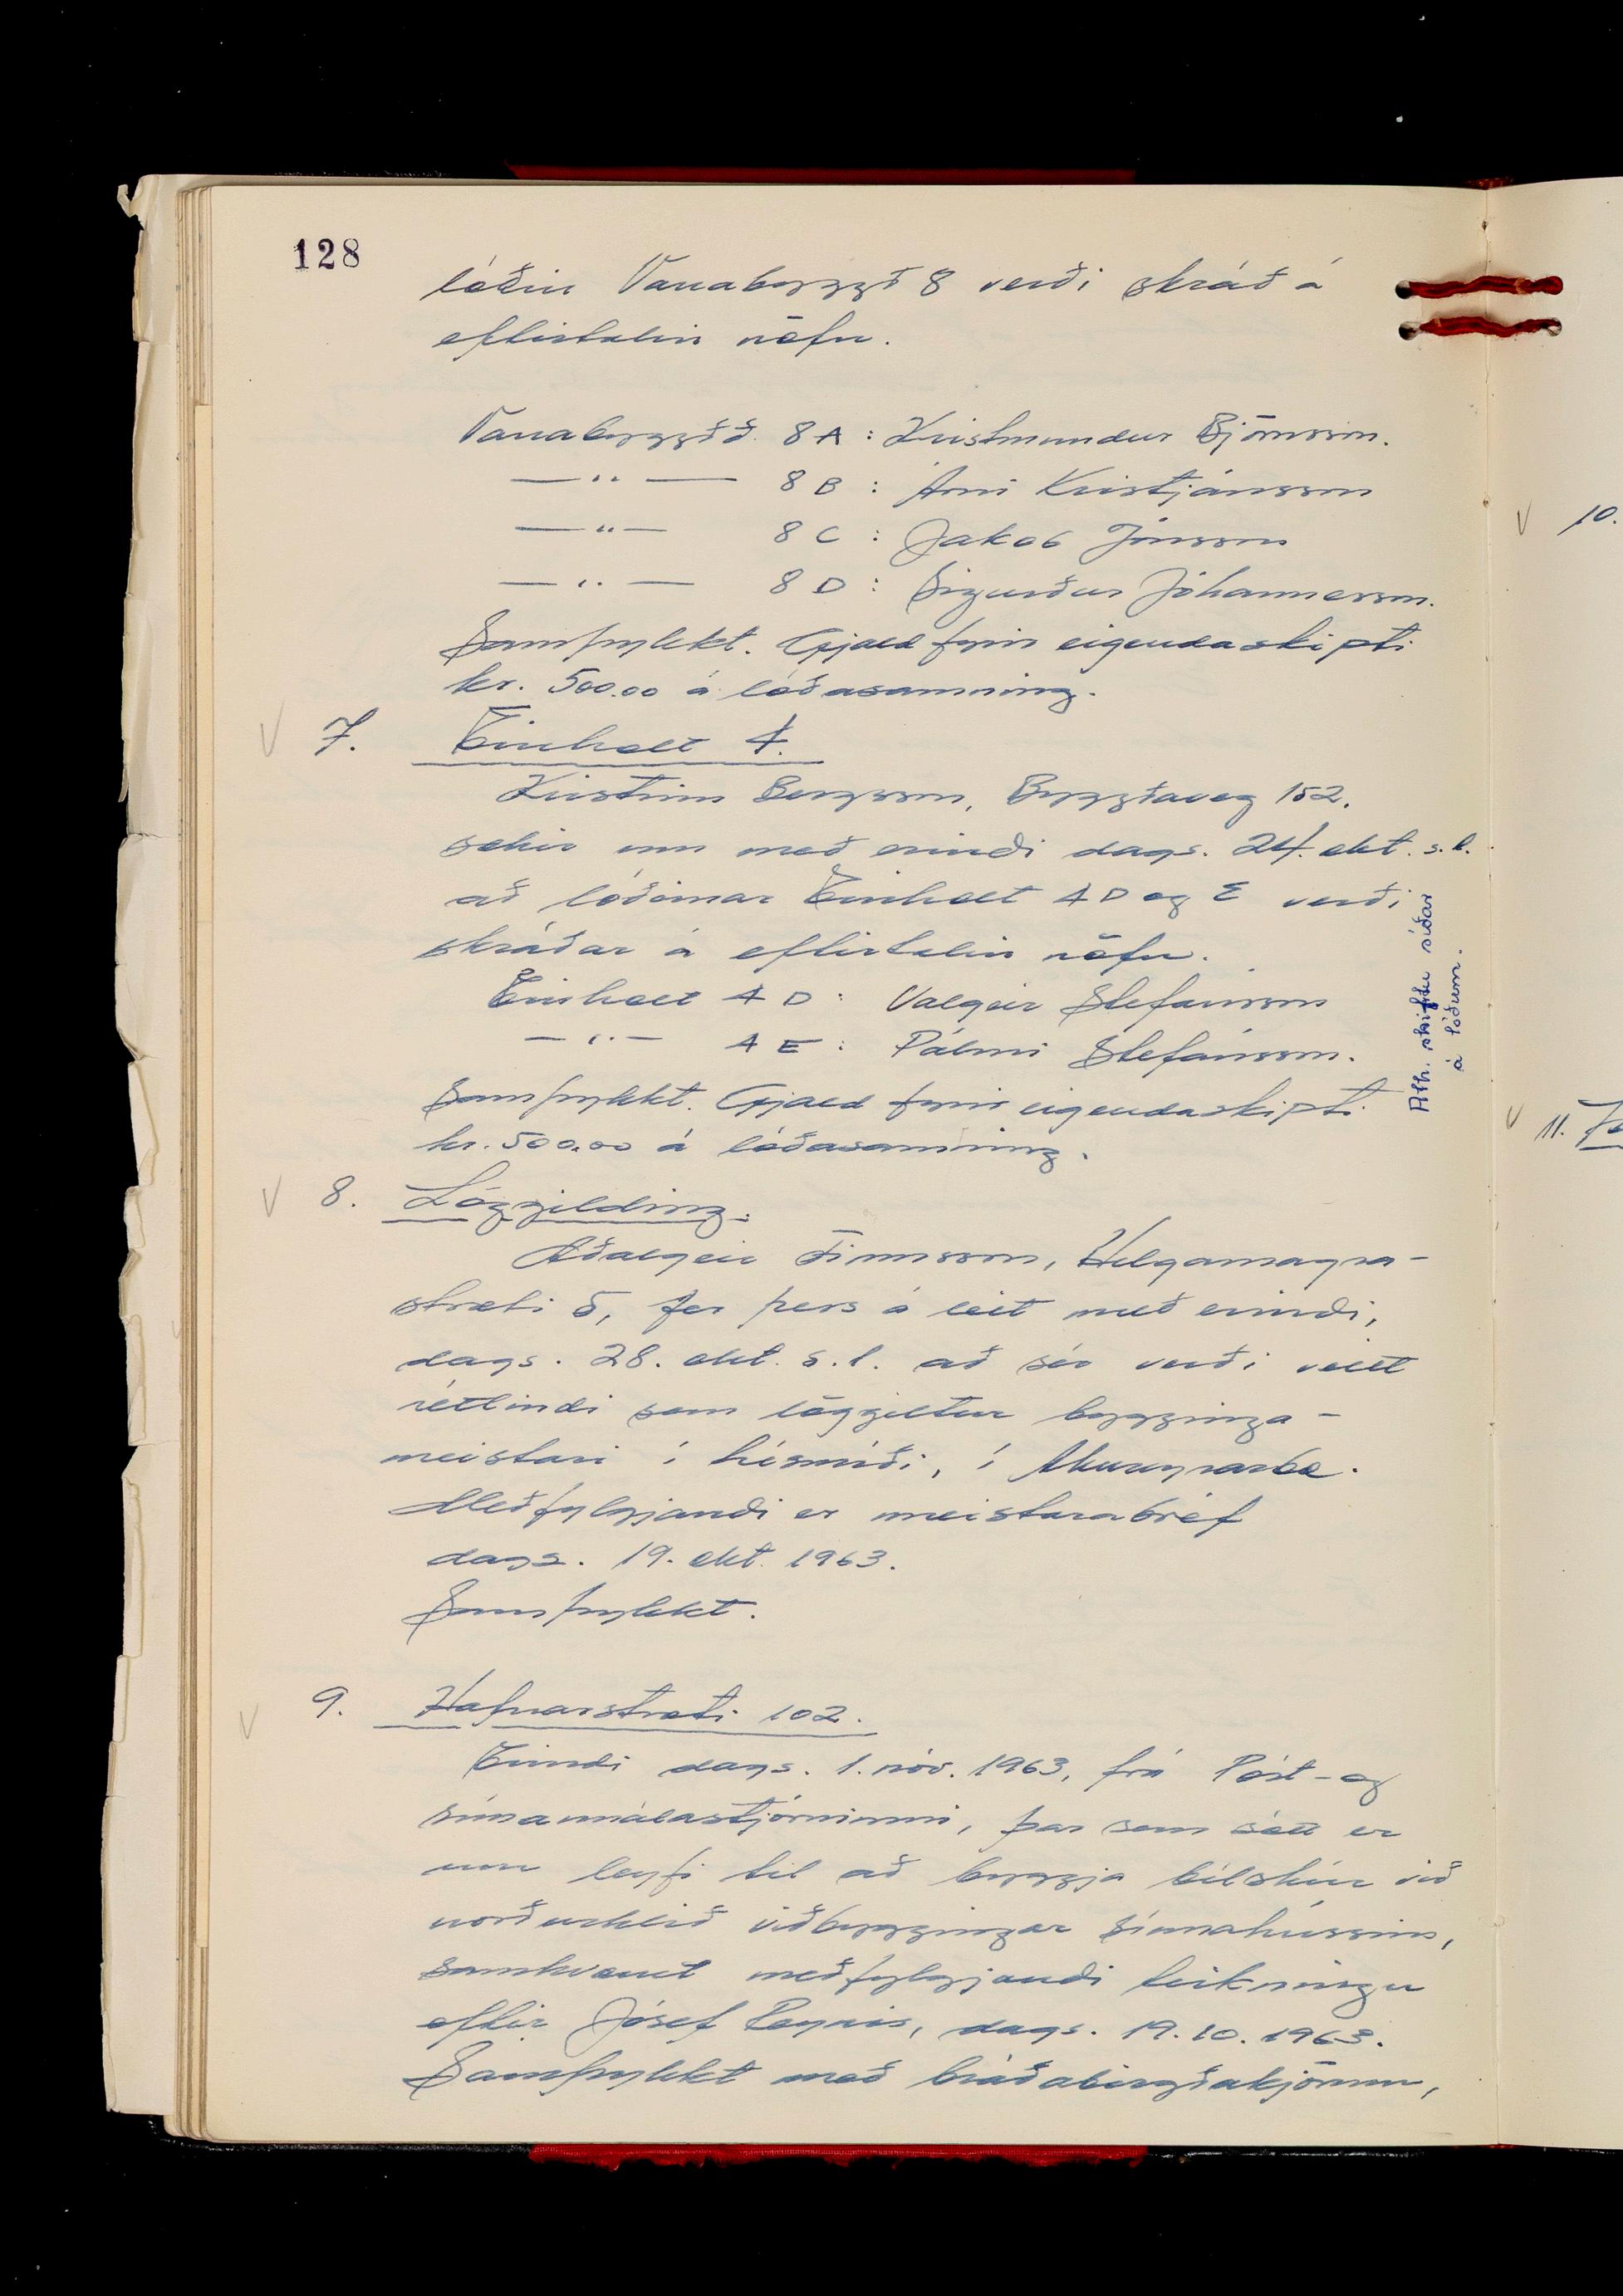 128
lóðin Vanabyggð 8 verði skráð á
eftirtalin nöfn.
Vanabyggð 8 A : Kristmundur Björnsson.
—"— 8 B : Árni Kristjánsson
—"— 8 C : Jakob Jónsson
—"— 8 D : Sigurður Jóhannesson.
Samþykkt. Gjald fyrir eigendaskipti
kr. 500.00 á lóðasamning.
V 7. Einholt 4.
Kristinn Bergsson, Byggðaveg 152,
sækir um með erindi dags. 24. okt. s.l.
að lóðirnar Einholt 4 D og E verði
skráðar á eftirtalin nöfn.
Einholt 4 D : Valgeir Stefánsson
—"— 4 E : Pálmi Stefánsson.
Samþykkt. Gjald fyrir eigendaskipti
kr. 500.00 á lóðasamning.
Ath. skiftu síðar
á lóðum.
V 8. Löggilding.
Aðalgeir Finnsson, Helgamagra-
stræti 5, fer þess á leit með erindi,
dags. 28. okt. s.l. að sér verði veitt
réttindi sem löggiltur bygginga-
meistari í húsmíði, í Akureyrarbæ.
Meðfylgjandi er meistarabréf
dags. 19. okt. 1963.
Samþykkt.
V 9. Hafnarstræti 102.
Erindi dags. 1. nóv. 1963, frá Póst- og
símamálastjórninni, þar sem sótt er
um leyfi til að byggja bílskúr við
norðurhlið viðbyggingar símahússins,
samkvæmt meðfylgjandi teikningu
eftir Jósef Reynis, dags. 19.10.1963.
Samþykkt með bráðabirgðakjörum,
V 10.
V 11.